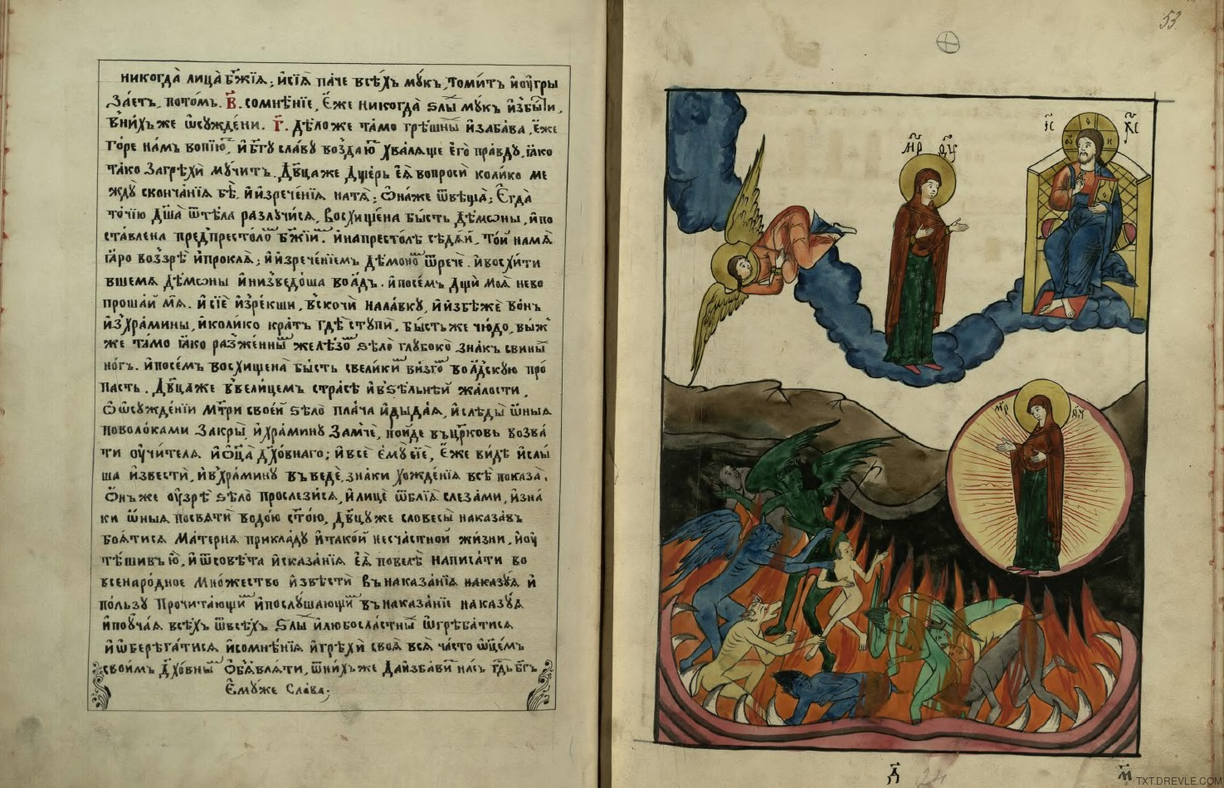 никогда̀ лица̀ бж҃їѧ; и҆сїѧ̀ па́че всѣ́хъ мꙋ́къ, томи́тъ и҆ᲂу҆гры
за́етъ, пото́мъ. в҃. сомнѣ́нїе, є҆́же никогда̀ ѕлы̀ мꙋ́къ и҆збы́ти,
в̾ни́хъже ѡ҆сꙋжде́ни. г҃. дѣ́ло же та́мо грѣ́шны и҆заба́ва, є҆́же
го́ре на́мъ вопїю́, и҆ бг҃ꙋ сла́вꙋ воздаю́ хва́лѧще є҆го̀ пра́вдꙋ, ꙗ҆́кѡ
та́ко загрѣхѝ мꙋ́читъ. дв҃ца же дще́рь є҆ѧ̀ вопросѝ коли́ко ме
ждꙋ̀ сконча́нїѧ бѣ̀, и҆ и҆зрече́нїѧ натѧ̀; ѻ҆на́же ѿвѣща̀; є҆гда̀
то́чїю дш҃а̀ ѿтѣ́ла разлꙋчи́сѧ, восхище́на бы́сть де́мѡны, и҆по
ста́влена предпресто́ло бж҃їи. и҆напресто́лѣ сѣдѧ́й, то́й намѧ̀
ꙗ҆́ро воззрѣ̀ и҆проклѧ̀; и҆ и҆зрече́нїемъ де́моно ѿречѐ. и҆восхи́ти
вшемѧ̀ де́мѡны и҆низведо́ша во а҆́дъ. и҆посе́мъ дщѝ моѧ̀ нево
проша́й мѧ̀. и҆ сїѐ и҆зре́кши, вскочѝ нала́вкꙋ, и҆ и҆збѣжѐ во́нъ
и҆з̾хра́мины, и҆коли́ко кра́тъ гдѣ̀ стꙋпѝ, бы́сть же чю́до, выж
же та́мо ꙗ҆́ко разже́нны желѣ́зо ѕѣлѡ̀ глꙋбоко̀ зна́къ свины̀
но́гъ. и҆посе́мъ восхище́на бы́сть свели́ки ви́зго во а҆́дскꙋю про
па́сть. дв҃ца же в̾вели́цемъ стра́сѣ и҆ в̾ѕѣ́льнѣй жа́лости,
ѡ҆ ѡ҆сꙋжде́нїи мт҃ри свое́й ѕѣлѡ̀ пла́ча и҆дыда́ѧ, и҆ слѣды̀ ѡ҆́ныѧ
поволо́ками закры̀, и҆ хра́минꙋ замчѐ, по́йде въ цр҃ковь возва́
ти ᲂу҆чи́телѧ и҆ѻ҆ц҃а̀ дх҃о́внаго; и҆ всѐ є҆мꙋ̀ сїѐ, є҆́же ви́дѣ и҆слы̀
ша и҆звестѝ, и҆ в̾хра́минꙋ въ ведѐ, зна́ки хожде́нїѧ всѣ̀ показа̀.
ѻ҆́нъ же ᲂу҆зрѣ̀ ѕѣлѡ̀ прослези́сѧ, и҆ лицѐ ѡ҆блїѧ̀ слеза́ми, и҆ зна
ки ѡ҆́ныѧ посвѧтѝ водо́ю ст҃о́ю, дв҃цꙋ же словесы̀ наказа́въ
боѧ́тисѧ ма́тернѧ прикла́дꙋ и҆тако́й несча́стной жи́зни, и҆ᲂу҆
тѣ́шивъ ю҆̀, и҆ ѿсовѣ́та и҆сказа́нїѧ є҆ѧ̀ повелѣ̀ написа́ти во
всенаро́дное мно́жество и҆звѣстѝ в̾наказа́нїѧ наказꙋ́ѧ и҆
по́льзꙋ прочита́ющи и҆послꙋ́шающи в̾наказа́нїе наказꙋ́ѧ
и҆поꙋча́ѧ всѣ́хъ ѿвсѣ́хъ ѕлы̀ и҆любосла́стны ѡ҆греба́тисѧ
и҆ ѡ҆берега́тисѧ, и҆сомнѣ́нїѧ и҆грѣхѝ своѧ̀ всѧ̀ ча́сто ѻ҆ц҃є́мъ
свои́мъ дх҃о́вны ѡ҆б̾ѧвлѧ́ти, ѿни́хъже да и҆зба́ви на́съ гд҃ь бг҃ъ
є҆мꙋ́же сла́ва;
53
м҃р ѳ҃ꙋ
і҃с х҃с
ѡ҆ н
м҃р ѳ҃ꙋ
д҃
24
м҃
TXT.DREVLE.COM